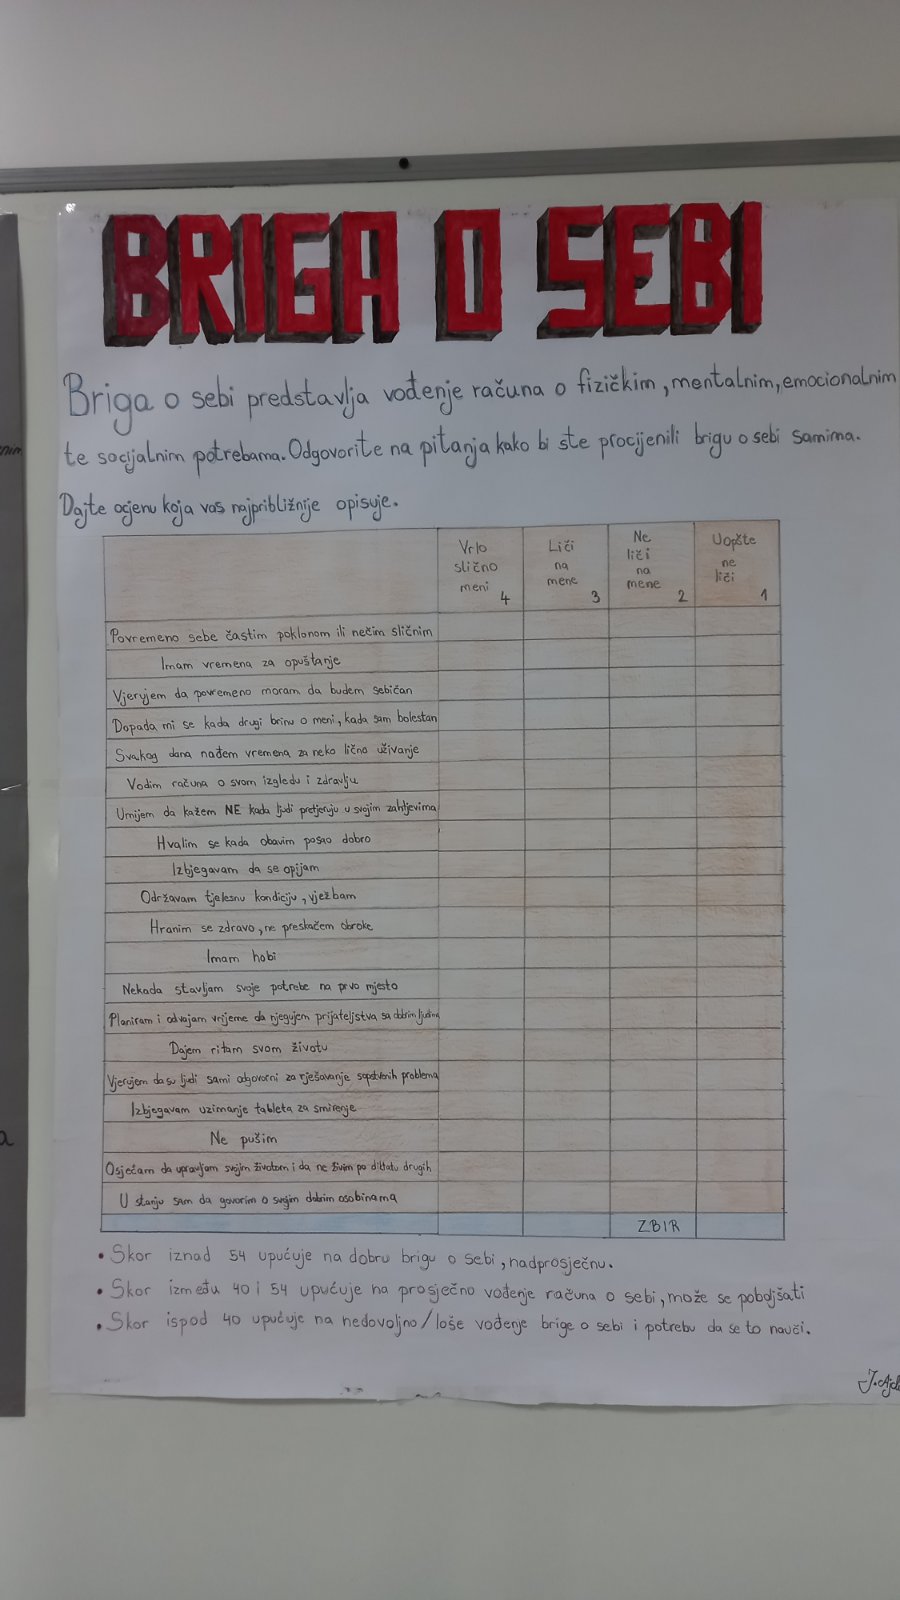 BRIGA O SEBI
Briga o sebi predstavlja vođenje računa o fizičkim, mentalnim, emocionalnim
te socijalnim potrebama. Odgovorite na pitanja kako bi ste procijenili brigu o sebi samima.
Dajte ocjenu koja vas najpribližnije opisuje.
Vrlo
slično
meni 4
Liči
na
mene 3
Ne
liči
na
mene 2
Uopšte
ne
liči 1
Povremeno sebe častim poklonom ili nečim sličnim
Imam vremena za opuštanje
Vjerujem da povremeno moram da budem sebičan
Dopada mi se kada drugi brinu o meni, kada sam bolestan
Svakog dana nađem vremena za neko lično uživanje
Vodim računa o svom izgledu i zdravlju
Umijem da kažem NE kada ljudi pretjeruju u svojim zahtjevima
Hvalim se kada obavim posao dobro
Izbjegavam da se opijam
Održavam tjelesnu kondiciju, vježbam
Hranim se zdravo, ne preskačem obroke
Imam hobi
Nekada stavljam svoje potrebe na prvo mjesto
Planiram i odvajam vrijeme da njegujem prijateljstva sa dobrim ljudima
Dajem ritam svom životu
Vjerujem da su ljudi sami odgovorni za rješavanje sopstvenih problema
Izbjegavam uzimanje tableta za smirenje
Ne pušim
Osjećam da upravljam svojim životom i da ne živim po diktatu drugih
U stanju sam da govorim o svojim dobrim osobinama
ZBIR
• Skor iznad 54 upućuje na dobru brigu o sebi, nadprosječnu.
• Skor između 40 i 54 upućuje na prosječno vođenje računa o sebi, može se poboljšati
• Skor ispod 40 upućuje na nedovoljno/loše vođenje brige o sebi i potrebu da se to nauči.